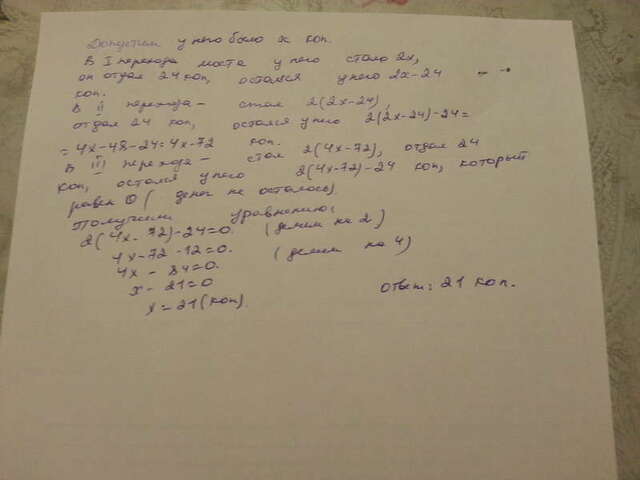 Допустим у него было x коп.
В I перехода моста у него стало 2x,
он отдал 24 коп, остался у него 2x-24
коп.
В II перехода - стал 2(2x-24),
отдал 24 коп, остался у него 2(2x-24)-24=
=4x-48-24=4x-72 коп.
В III перехода - стал 2(4x-72), отдал 24
коп, остался у него 2(4x-72)-24 коп, который
равен 0 (денег не осталось).
Получим уравнению:
2(4x-72)-24=0. (делим на 2)
4x-72-12=0.
4x-84=0. (делим на 4)
x-21=0
x=21(коп).
ответ: 21 коп.